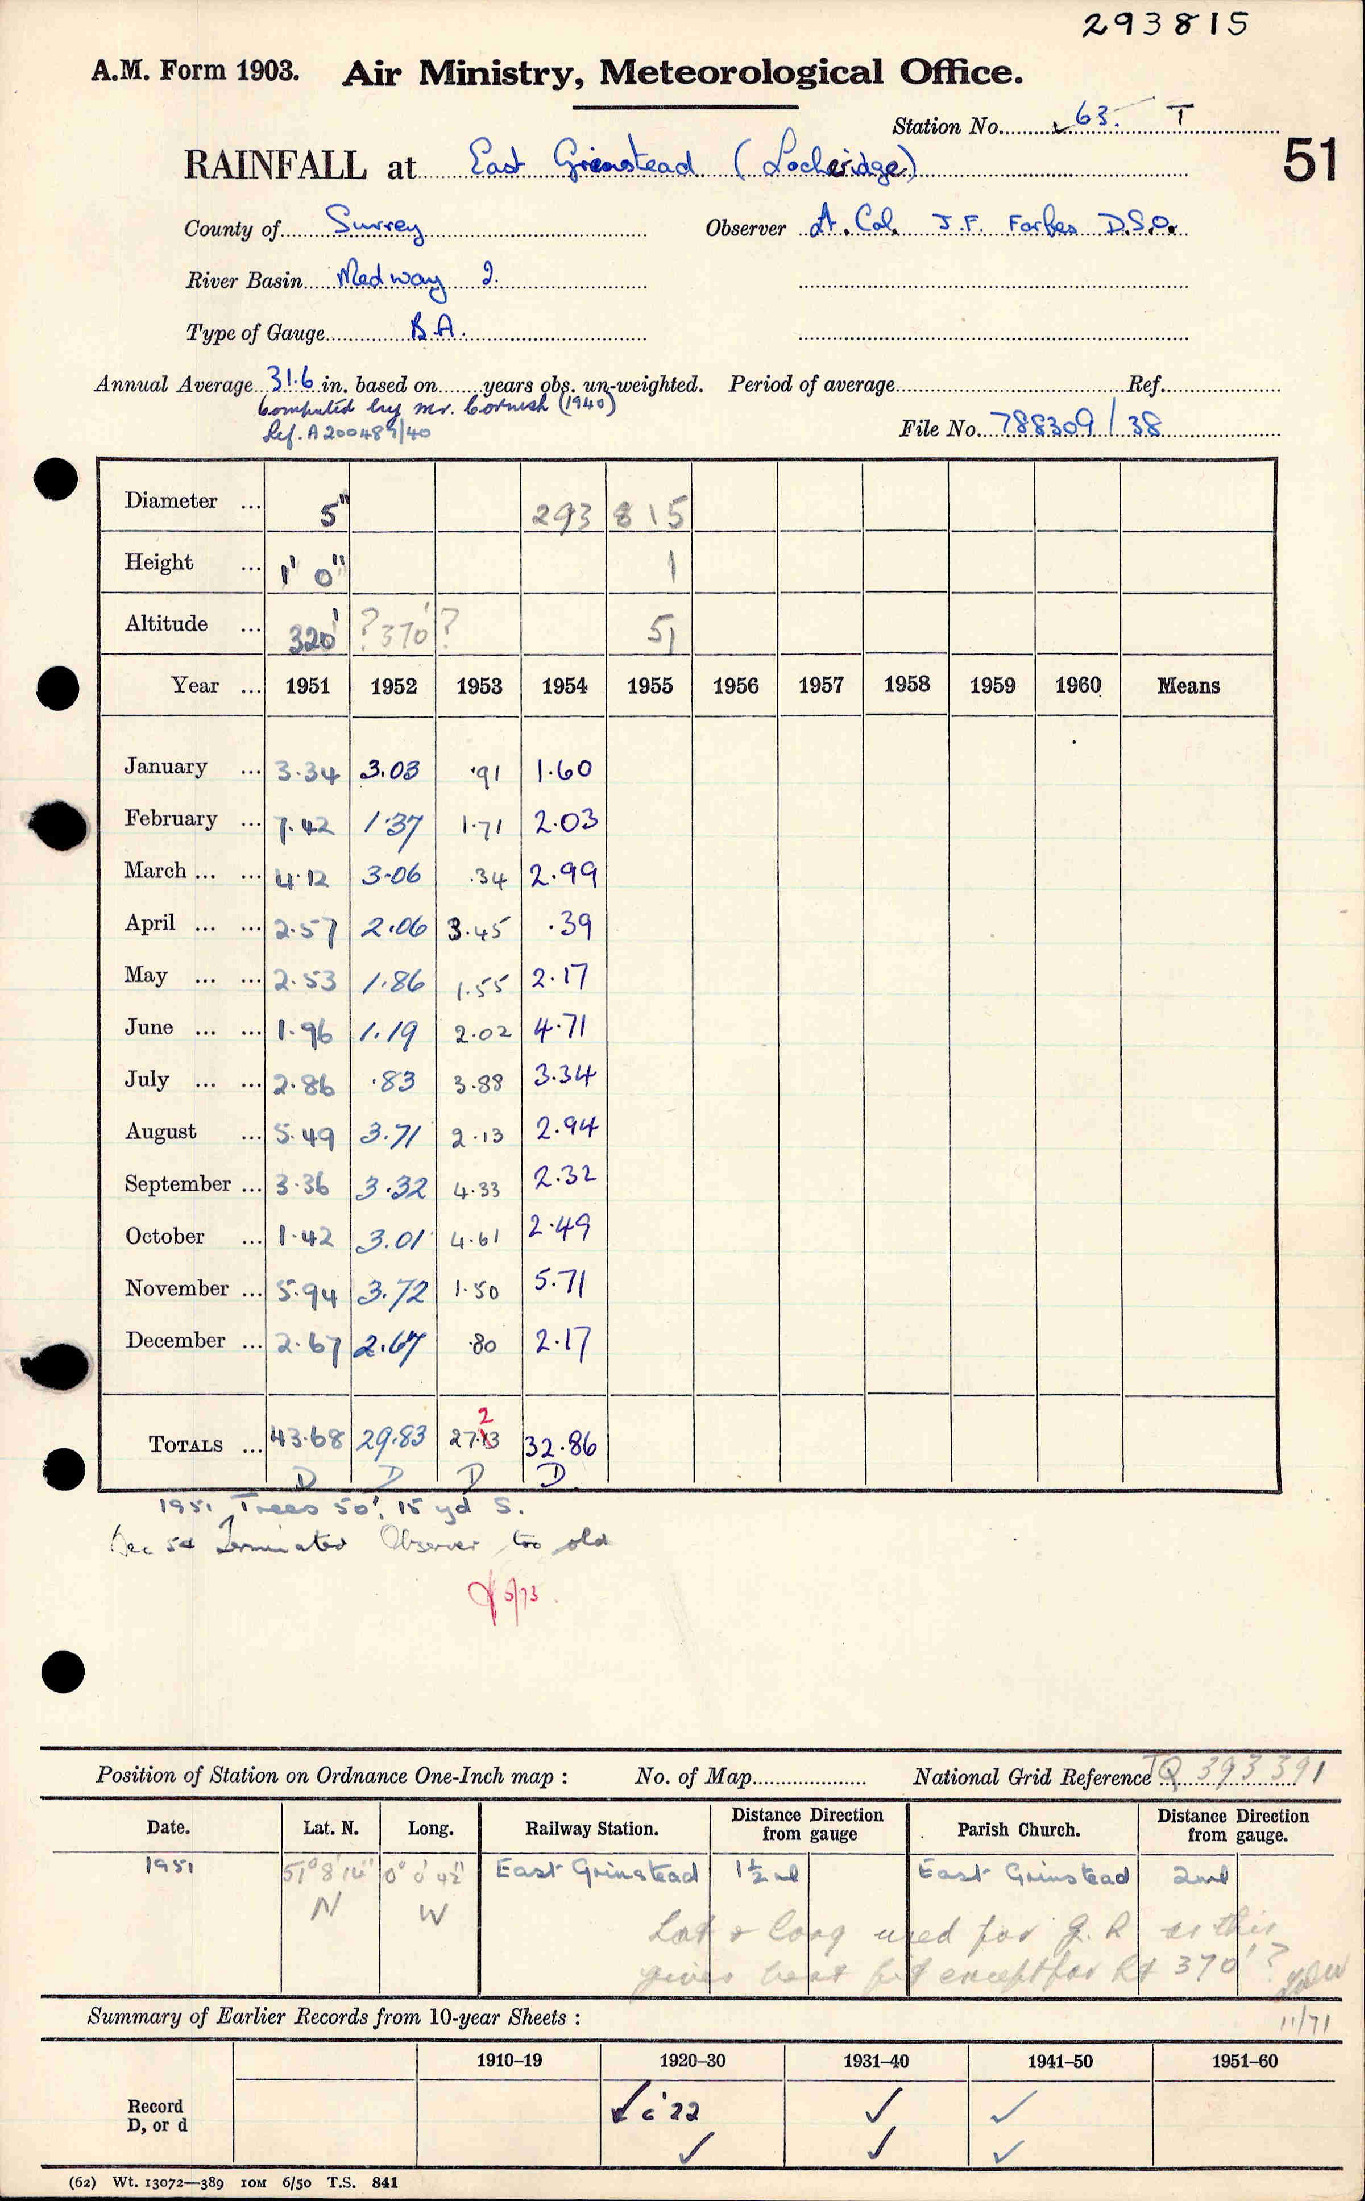 293815
A.M. Form 1903. Air Ministry, Meteorological Office.
Station No. 63. T
51
RAINFALL at East Grinstead (Locheridge)
County of Surrey Observer Lt. Col. J.F. Forbes D.S.O.
River Basin Medway 2.
Type of Gauge B.A.
Annual Average 31.6 in. based on years obs. un-weighted. Period of average Ref.
Computed by Mr. Cornish (1940)
Ref. A200489/40
File No. 788309/38
Diameter ... 5" 293 815
Height ... 1' 0" 1
Altitude ... 320' ?370'? 51
Year ... 1951 1952 1953 1954 1955 1956 1957 1958 1959 1960 Means
January ... 3.34 3.03 .91 1.60
February ... 7.42 1.37 1.71 2.03
March ... ... 4.12 3.06 .34 2.99
April ... ... 2.57 2.06 3.45 .39
May ... ... 2.53 1.86 1.55 2.17
June ... ... 1.96 1.19 2.02 4.71
July ... ... 2.86 .83 3.88 3.34
August ... 5.49 3.71 2.13 2.94
September ... 3.36 3.32 4.33 2.32
October ... 1.42 3.01 4.61 2.49
November ... 5.94 3.72 1.50 5.71
December ... 2.67 2.67 .80 2.17
2
TOTALS ... 43.68 29.83 27.13 32.86
D D D D
1951 Trees 50', 15 yd S.
Dec 54 Terminated Observer too old
5/73
Position of Station on Ordnance One-Inch map : No. of Map National Grid Reference TQ 393 391
Date. Lat. N. Long. Railway Station. Distance Direction from gauge Parish Church. Distance Direction from gauge.
1951 51° 8' 14" 0° 0' 42" East Grinstead 1½ ml East Grinstead 2 ml
N W
Lat & Long used for G.R as this
gives best fit except for ht 370'?
11/71
Summary of Earlier Records from 10-year Sheets :
1910–19 1920–30 1931–40 1941–50 1951–60
Record ✓ c '22 ✓ ✓
D, or d ✓ ✓ ✓
(62) Wt. 13072—389 10M 6/50 T.S. 841